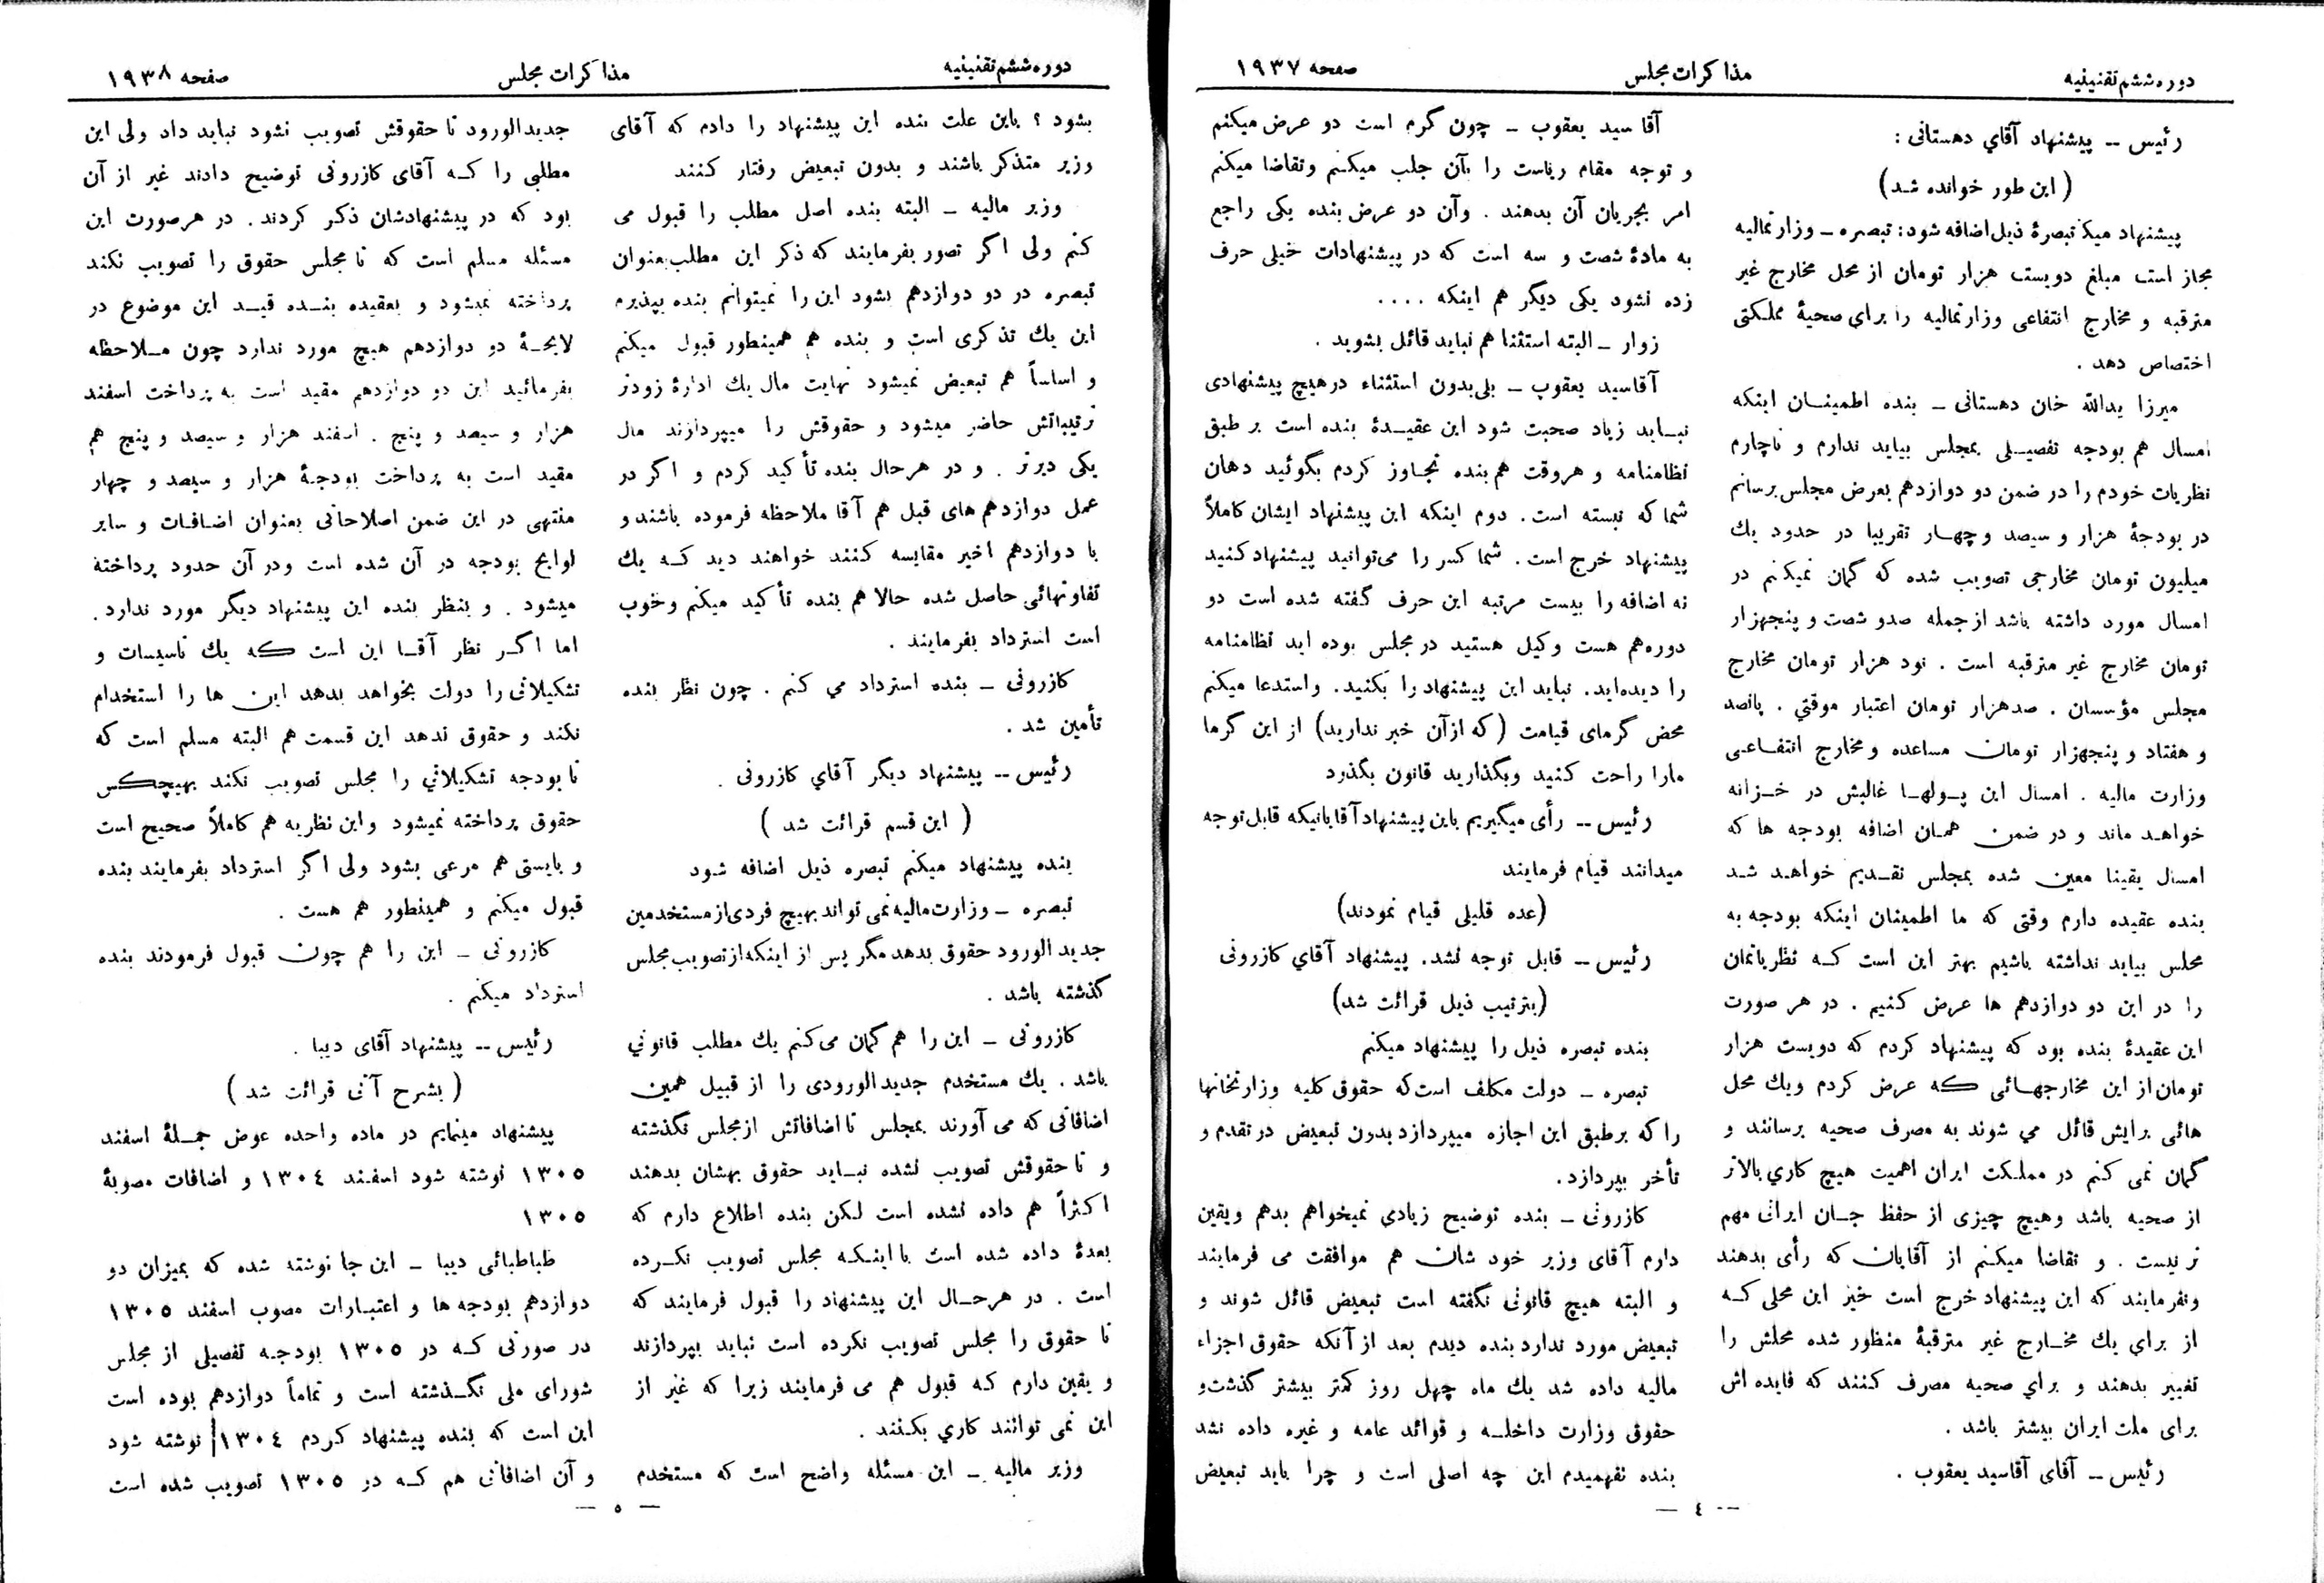 دوره ششم تقنینیه
مذاکرات مجلس
صفحه ۱۹۳۷
رئیس -- پیشنهاد آقاي دهستانی :
( این طور خوانده شد )
پیشنهاد میکنم تبصرهٔ ذیل اضافه شود: تبصره ـ وزارتمالیه
مجاز است مبلغ دویست هزار تومان از محل مخارج غیر
مترقبه و مخارج انتفاعی وزارتمالیه را برای صحیهٔ مملکتی
اختصاص دهد .
میرزا یدالله خان دهستانی ـ بنده اطمینان اینکه
امسال هم بودجه تفصیلی بمجلس بیاید ندارم و ناچارم
نظریات خودم را در ضمن دو دوازدهم بعرض مجلس برسانم
در بودجهٔ هزار و سیصد و چهار تقریبا در حدود یك
میلیون تومان مخارجی تصویب شده که گمان نمیکنم در
امسال مورد داشته باشد از جمله صدو شصت و پنجهزار
تومان مخارج غیر مترقبه است . نود هزار تومان مخارج
مجلس مؤسسان . صدهزار تومان اعتبار موقتي . پانصد
و هفتاد و پنجهزار تومان مساعده و مخارج انتفاعی
وزارت مالیه . امسال این پولها غالبش در خزانه
خواهد ماند و در ضمن همان اضافه بودجه ها که
امسال یقینا معین شده بمجلس تقدیم خواهد شد
بنده عقیده دارم وقتی که ما اطمینان اینکه بودجه به
مجلس بیاید نداشته باشیم بهتر این است که نظریاتمان
را در این دو دوازدهم ها عرض کنیم . در هر صورت
این عقیدهٔ بنده بود که پیشنهاد کردم که دویست هزار
تومان از این مخارجهائی که عرض کردم ویك محل
هائی برایش قائل می شوند به مصرف صحیه برسانند و
گمان نمی کنم در مملکت ایران اهمیت هیچ کاري بالاتر
از صحیه باشد وهیچ چیزی از حفظ جان ایرانی مهم
تر نیست . و تقاضا میکنم از آقایان که رأی بدهند
ونفرمایند که این پیشنهاد خرج است خیر این محلی که
از براي یك مخارج غیر مترقبهٔ منظور شده محلش را
تغییر بدهند و براي صحیه مصرف کنند که فایده اش
برای ملت ایران بیشتر باشد .
رئیس ـ آقای آقاسید یعقوب .
آقا سید یعقوب ـ چون گرم است دو عرض میکنم
و توجه مقام ریاست را بآن جلب میکنم وتقاضا میکنم
امر بجریان آن بدهند . وآن دو عرض بنده یکی راجع
به مادهٔ شصت و سه است که در پیشنهادات خیلی حرف
زده نشود یکی دیگر هم اینکه ....
زوار ـ البته استثنا هم نباید قائل بشوید .
آقاسید یعقوب ـ بلی بدون استثناء در هیچ پیشنهادی
نباید زیاد صحبت شود این عقیدهٔ بنده است بر طبق
نظامنامه و هروقت هم بنده تجاوز کردم بگوئید دهان
شما که نبسته است . دوم اینکه این پیشنهاد ایشان کاملاً
پیشنهاد خرج است . شما کسر را می‌توانید پیشنهاد کنید
نه اضافه را بیست مرتبه این حرف گفته شده است دو
دوره هم هست وکیل هستید در مجلس بوده اید نظامنامه
را دیده‌اید. نباید این پیشنهاد را بکنید. واستدعا میکنم
محض گرمای قیامت (که ازآن خبر ندارید) از این گرما
مارا راحت کنید وبگذارید قانون بگذرد
رئیس -- رأی میگیریم باین پیشنهاد آقایانیکه قابل توجه
میدانند قیام فرمایند
(عده قلیلی قیام نمودند)
رئیس -- قابل توجه نشد. پیشنهاد آقاي کازرونی
(بترتیب ذیل قرائت شد)
بنده تبصره ذیل را پیشنهاد میکنم
تبصره ـ دولت مکلف است که حقوق کلیه وزارتخانها
را که برطبق این اجازه میپردازد بدون تبعیض در تقدم و
تأخر بپردازد.
کازرونی ـ بنده توضیح زیادي نمیخواهم بدهم ویقین
دارم آقای وزیر خود شان هم موافقت می فرمایند
و البته هیچ قانونی نگفته است تبعیض قائل شوند و
تبعیض مورد ندارد بنده دیدم بعد از آنکه حقوق اجزاء
مالیه داده شد یك ماه چهل روز کمتر بیشتر گذشت و
حقوق وزارت داخله و فوائد عامه و غیره داده نشد
بنده نفهمیدم این چه اصلی است و چرا باید تبعیض
-- ٤ —
دوره ششم تقنینیه
مذاکرات مجلس
صفحه ۱۹۳۸
بشود ؟ باین علت بنده این پیشنهاد را دادم که آقای
وزیر متذکر باشند و بدون تبعیض رفتار کنند
وزیر مالیه ـ البته بنده اصل مطلب را قبول می
کنم ولی اگر تصور بفرمایند که ذکر این مطلب بعنوان
تبصره در دو دوازدهم بشود این را نمیتوانم بنده بپذیرم
این یك تذکری است و بنده هم همینطور قبول میکنم
و اساساً هم تبعیض نمیشود نهایت مال یك ادارهٔ زودتر
ترتیباتش حاضر میشود و حقوقش را میپردازند مال
یکی دیرتر . و در هرحال بنده تأکید کردم و اگر در
عمل دوازدهم های قبل هم آقا ملاحظه فرموده باشند و
با دوازدهم اخیر مقایسه کنند خواهند دید که یك
تفاوتهائی حاصل شده حالا هم بنده تأکید میکنم وخوب
است استرداد بفرمایند .
کازرونی ـ بنده استرداد می کنم . چون نظر بنده
تأمین شد .
رئیس -- پیشنهاد دیگر آقاي کازرونی .
( این قسم قرائت شد )
بنده پیشنهاد میکنم تبصره ذیل اضافه شود
تبصره ـ وزارت مالیه نمی تواند بهیچ فردی از مستخدمین
جدید الورود حقوق بدهد مگر پس از اینکه از تصویب مجلس
گذشته باشد .
کازرونی ـ این را هم گمان می‌کنم یك مطلب قانوني
باشد . یك مستخدم جدید الورودی را از قبیل همین
اضافاتی که می آورند بمجلس تا اضافاتش از مجلس نگذشته
و تا حقوقش تصویب نشده نباید حقوق بهشان بدهند
اکثراً هم داده نشده است لکن بنده اطلاع دارم که
بعدهٔ داده شده است با اینکه مجلس تصویب نکرده
است . در هرحال این پیشنهاد را قبول فرمایند که
تا حقوق را مجلس تصویب نکرده است نباید بپردازند
و یقین دارم که قبول هم می فرمایند زیرا که غیر از
این نمی توانند کاري بکنند .
وزیر مالیه ـ این مسئله واضح است که مستخدم
جدیدالورود تا حقوقش تصویب نشود نباید داد ولی این
مطلبی را که آقای کازرونی توضیح دادند غیر از آن
بود که در پیشنهادشان ذکر کردند. در هرصورت این
مسئله مسلم است که تا مجلس حقوق را تصویب نکند
پرداخته نمیشود و بعقیده بنده قید این موضوع در
لایحهٔ دو دوازدهم هیچ مورد ندارد چون ملاحظه
بفرمائید این دو دوازدهم مقید است به پرداخت اسفند
هزار و سیصد و پنج . اسفند هزار و سیصد و پنج هم
مقید است به پرداخت بودجهٔ هزار و سیصد و چهار
منتهی در این ضمن اصلاحاتی بعنوان اضافات و سایر
لوایح بودجه در آن شده است ودر آن حدود پرداخته
میشود . و بنظر بنده این پیشنهاد دیگر مورد ندارد.
اما اگر نظر آقا این است که یك تاسیسات و
تشکیلاتی را دولت بخواهد بدهد این ها را استخدام
نکند و حقوق ندهد این قسمت هم البته مسلم است که
تا بودجه تشکیلاتي را مجلس تصویب نکند بهیچکس
حقوق پرداخته نمیشود واین نظریه هم کاملاً صحیح است
و بایستی هم مرعی بشود ولی اگر استرداد بفرمایند بنده
قبول میکنم و همینطور هم هست .
کازرونی ـ این را هم چون قبول فرمودند بنده
استرداد میکنم .
رئیس -- پیشنهاد آقای دیبا .
( بشرح آتی قرائت شد )
پیشنهاد مینمایم در ماده واحده عوض جملهٔ اسفند
۱۳۰٥ نوشته شود اسفند ۱۳۰٤ و اضافات مصوبهٔ
۱۳۰٥
طباطبائی دیبا ـ این جا نوشته شده که بمیزان دو
دوازدهم بودجه ها و اعتبارات مصوب اسفند ۱۳۰٥
در صورتی که در ۱۳۰٥ بودجه تفصیلی از مجلس
شورای ملی نگذشته است و تماماً دوازدهم بوده است
این است که بنده پیشنهاد کردم ۱۳۰٤ نوشته شود
و آن اضافاتی هم که در ۱۳۰٥ تصویب شده است
— ٥ —